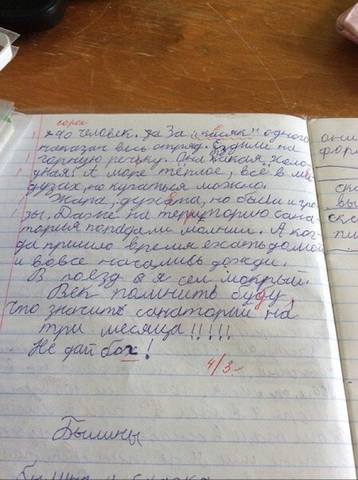 сорок
40 человек. За За "косяк" одного
наказан весь отряд. Ездили на
горную речьку. Она такая холо
дная! А море тёплое, всё в ме
дузах, но купаться можно.
Жара, духота, но были и гро
зы. Даже на территорию сана
тория попадали молнии. А ког
да пришло время ехать домой
и вовсе начались дожди.
В поезд я сел мокрый.
Век помнить буду,
что значить санаторий на
три месяца!!!!!
Не дай бох!
4/3-
Былины
былина и сказка